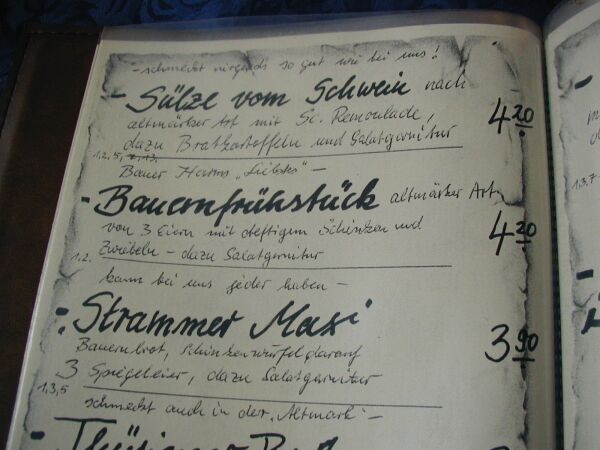 - schmeckt nirgends so gut wie bei uns!
- Sülze vom Schwein nach
altmärker Art mit Sc. Remoulade,
dazu Bratkartoffeln und Salatgarnitur 4.20
1,2,5,
Bauer Harms "Liebstes" -
- Bauernfrühstück altmärker Art
von 3 Eiern mit deftigem Schinken und
Zwiebeln - dazu Salatgarnitur 4.20
1,2.
kann bei uns jeder haben -
- Strammer Maxi
Bauernbrot, Schinkenwürfel darauf
3 Spiegeleier, dazu Salatgarnitur 3.90
1,3,5
schmeckt auch in der "Altmark" -